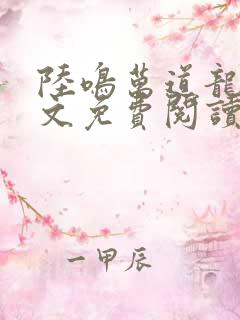 陸鳴萬道龍
文免費閱讀
一甲辰